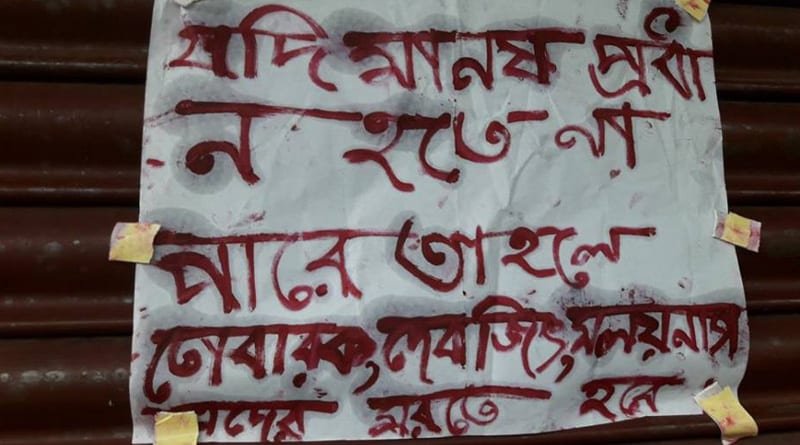 যদি মানষ প্রধা
ন হতে না
পারে তাহলে
তোবারক, দেবাজিৎ, মলয়নাগ
মরতে হবে